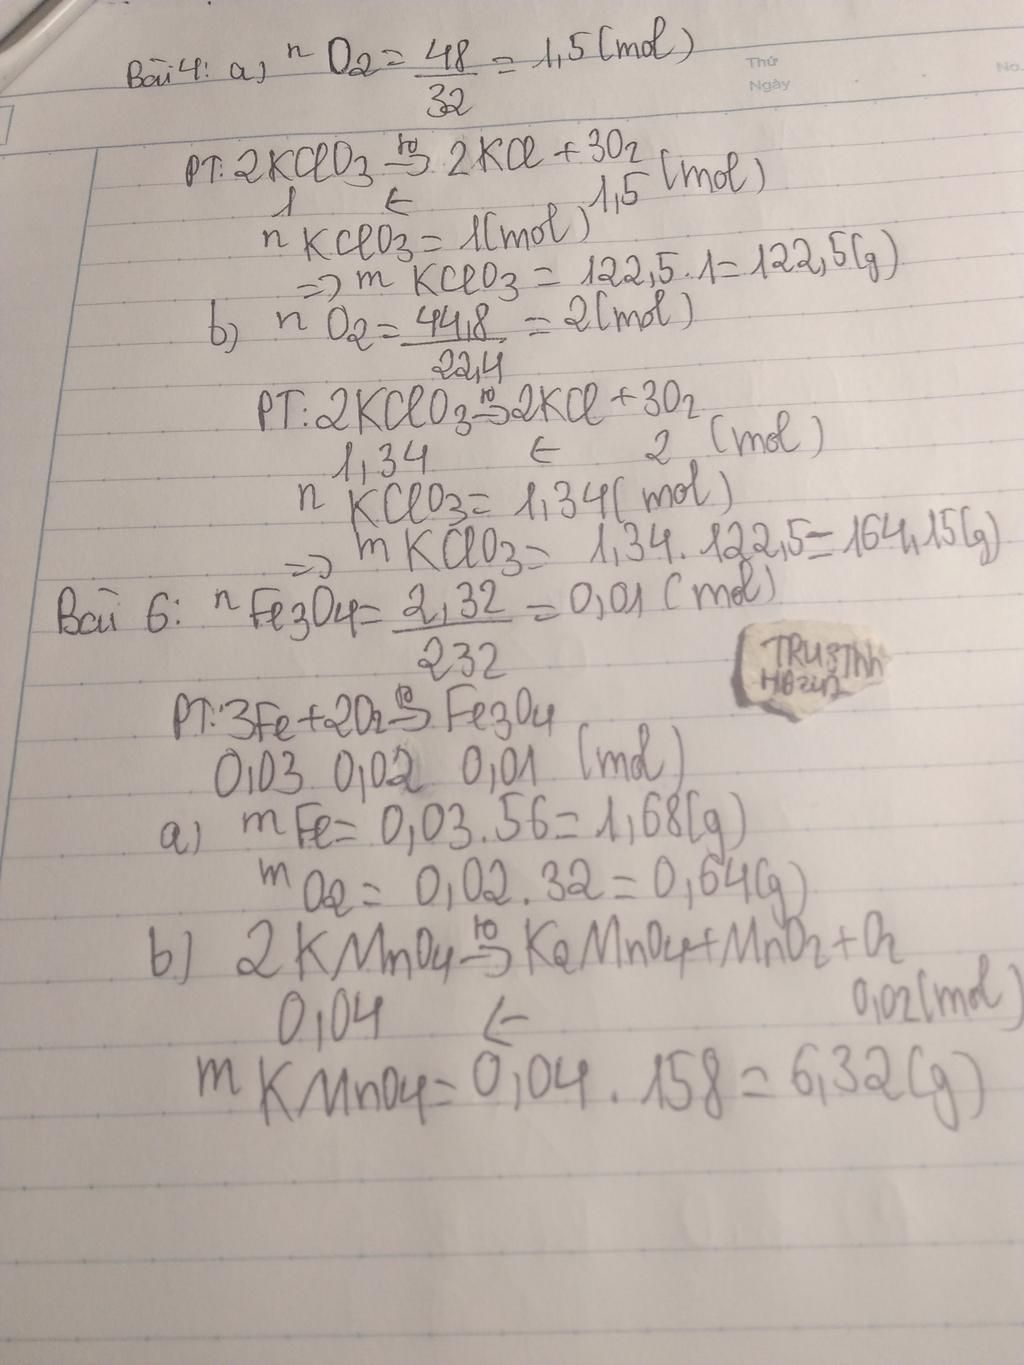 Bài 4: a) n O2 = 48/32 = 1,5 (mol)
Thứ
Ngày
No.
PT: 2KClO3 t0→ 2KCl + 3O2
1 ← 1,5 (mol)
n KClO3 = 1(mol)
=> m KClO3 = 122,5.1 = 122,5(g)
b) n O2 = 44,8/22,4 = 2(mol)
PT: 2KClO3 t0→ 2KCl + 3O2
1,34 ← 2 (mol)
n KClO3 = 1,34( mol)
=> m KClO3 = 1,34. 122,5 = 164,15(g)
Bài 6: n Fe3O4 = 2,32/232 = 0,01 ( mol)
PT: 3Fe + 2O2 t0→ Fe3O4
0,03 0,02 0,01 (mol)
a) m Fe = 0,03.56 = 1,68(g)
m O2 = 0,02.32 = 0,64(g)
b) 2KMnO4 t0→ K2MnO4 + MnO2 + O2
0,04 ← 0,02(mol)
m KMnO4 = 0,04 . 158 = 6,32(g)